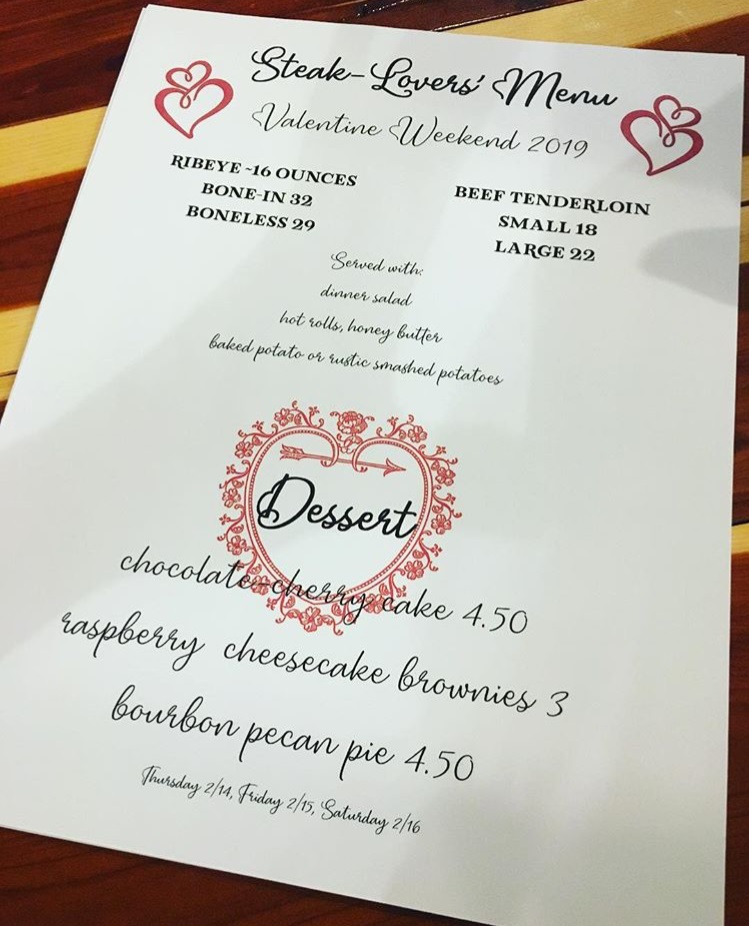 Steak-Lovers' Menu
Valentine Weekend 2019
RIBEYE ~16 OUNCES
BONE-IN 32
BONELESS 29
BEEF TENDERLOIN
SMALL 18
LARGE 22
Served with:
dinner salad
hot rolls, honey butter
baked potato or rustic smashed potatoes
Dessert
chocolate-cherry cake 4.50
raspberry cheesecake brownies 3
bourbon pecan pie 4.50
Thursday 2/14, Friday 2/15, Saturday 2/16